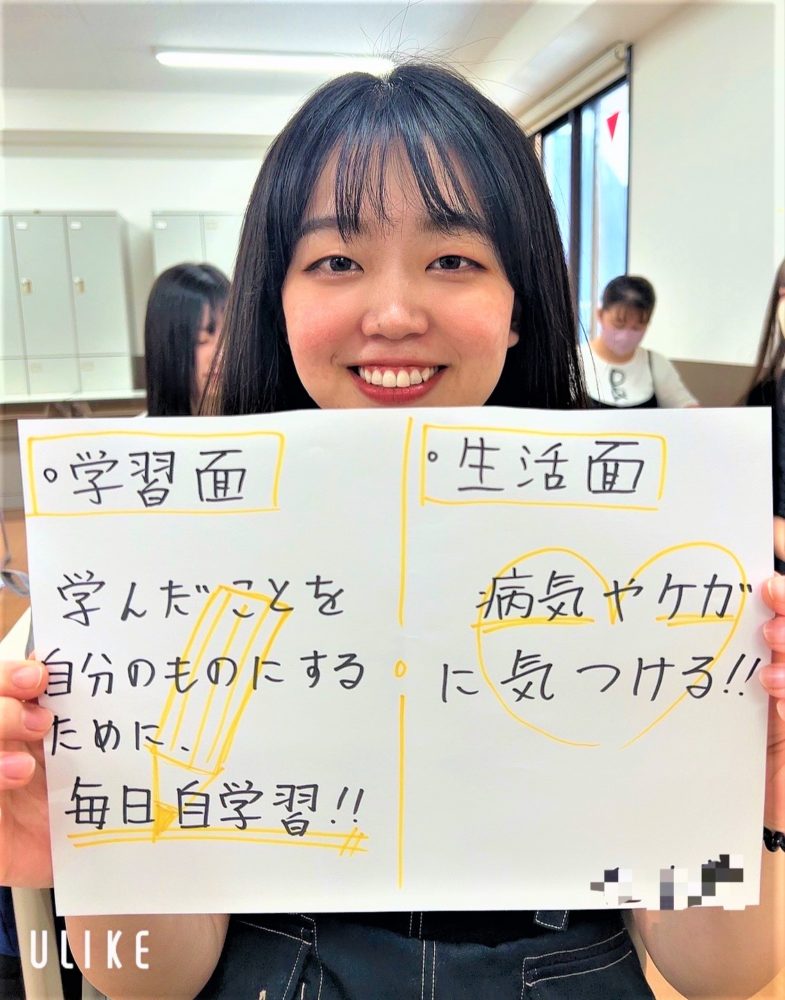 ・学習面
学んだことを
自分のものにする
ために、
毎日自学習!!
・生活面
病気やケガ
に気つける!!
ULIKE